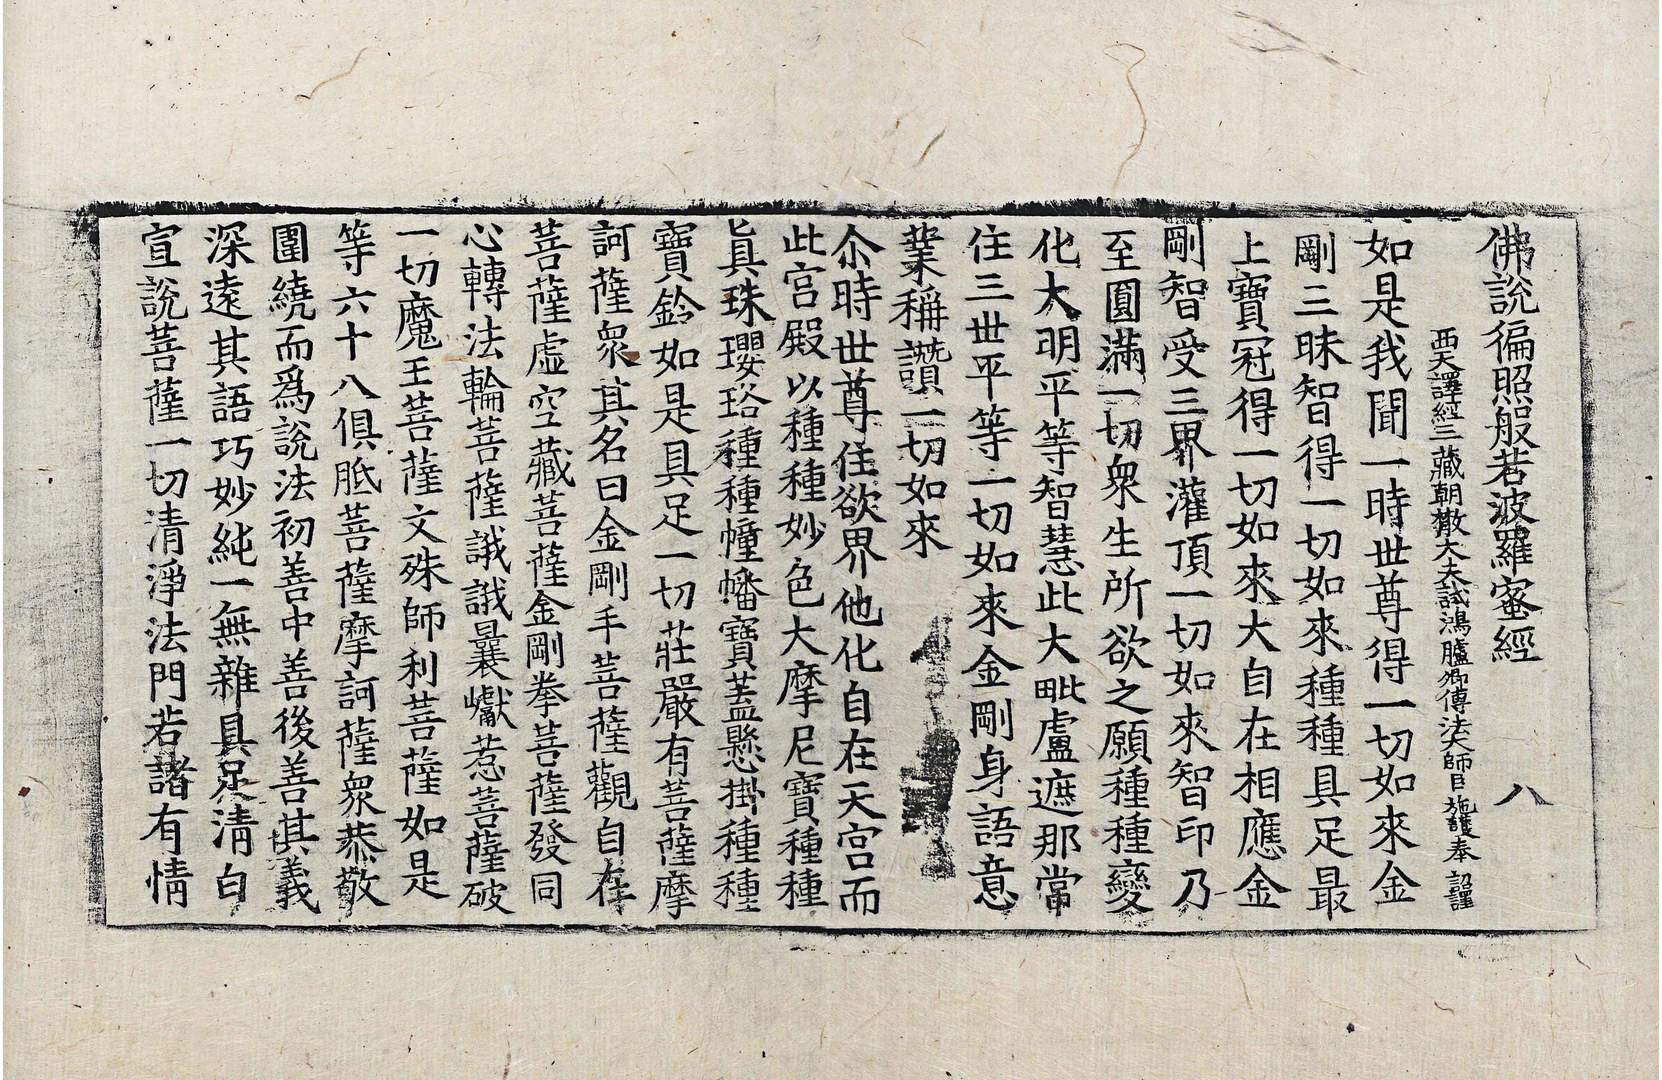 佛說徧照般若波羅蜜經 八
西天譯經三藏朝散大夫試鴻臚卿傳法大師臣施護奉 詔譯
如是我聞一時世尊得一切如來金
剛三昧智得一切如來種種具足最
上寶冠得一切如來大自在相應金
剛智受三界灌頂一切如來智印乃
至圓滿一切衆生所欲之願種種變
化大明平等智慧此大毗盧遮那當
住三世平等一切如來金剛身語意
業稱讚一切如來
尒時世尊住欲界他化自在天宮而
此宮殿以種種妙色大摩尼寶種種
眞珠瓔珞種種幢幡寶蓋懸掛種種
寶鈴如是具足一切莊嚴有菩薩摩
訶薩衆其名曰金剛手菩薩觀自在
菩薩虛空藏菩薩金剛拳菩薩發同
心轉法輪菩薩誐誐曩巘惹菩薩破
一切魔王菩薩文殊師利菩薩如是
等六十八俱胝菩薩摩訶薩衆恭敬
圍繞而爲說法初善中善後善其義
深遠其語巧妙純一無雜具足清白
宣說菩薩一切清淨法門若諸有情